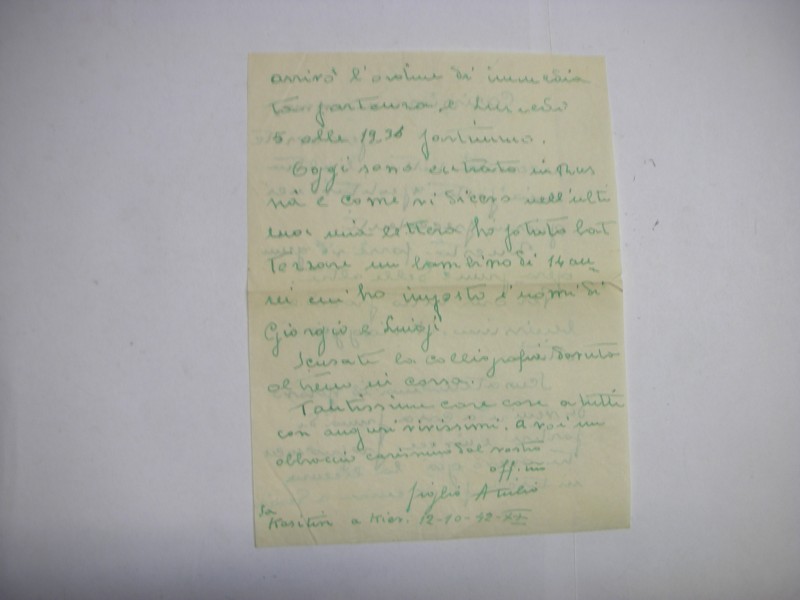 arrivò l'ordine di immedia
ta partenza, e Lunedì
5 alle 19,30 partimmo.
Oggi sono entrato in Rus
sia e come vi dicevo nell'ulti
ma mia lettera ho potuto bat
tezzare un bambino di 14 an
ni cui ho imposto i nomi di
Giorgio e Luigi
Scusate la calligrafia dovuta
al treno in corsa.
Tantissime care cose a tutti
con auguri vivissimi. A voi un
abbraccio carissimo dal vostro
aff.mo
figlio Attilio
Da
a Kiev. 12-10-42-XX